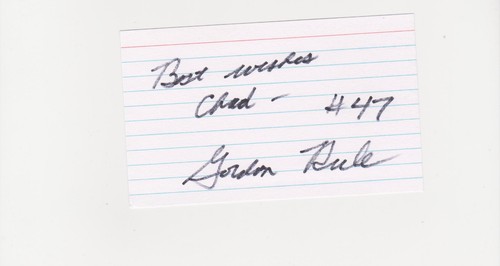 Best wishes
Chad - #47
Gordon Rule